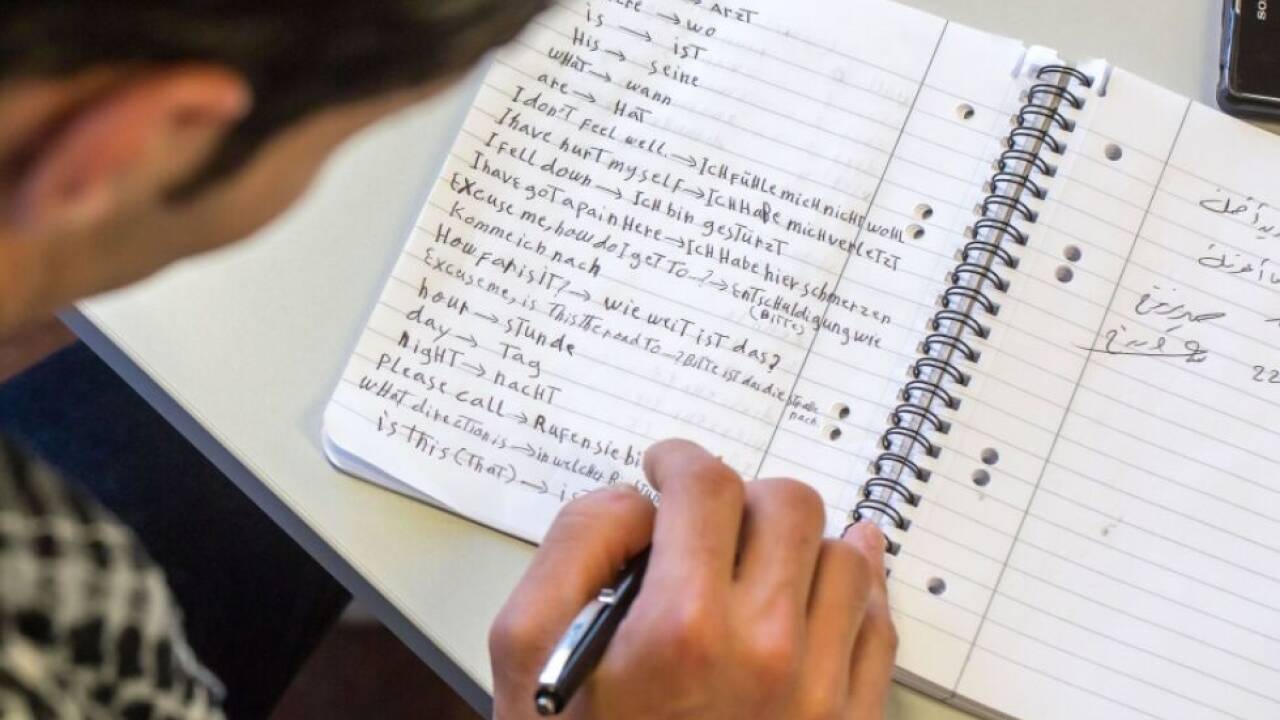 → ArzT
→ wo
is → isT
His → seine
wHaT → wann
are → HaT
I don't feel well. → ICH FÜHle mich nicht wohl
I have hurT myself → ICH HaBe mich verleTzT
I fell down → Ich bin gesTürzT
I have goT a pain Here → ICH Habe hier schmerzen
Excuse me, how do I geT To..? → EnTschuldigung wie
(BiTTe)
Komme ich nach
How far is iT? → wie weiT isT das?
Excuse me, is This The road To → BiTTe ist das die straße
nach
hour → sTunde
day → Tag
nigHT → nachT
please call → Rufen sie bi
wHaT direcTion is → in welcher
is this (ThaT) →
22